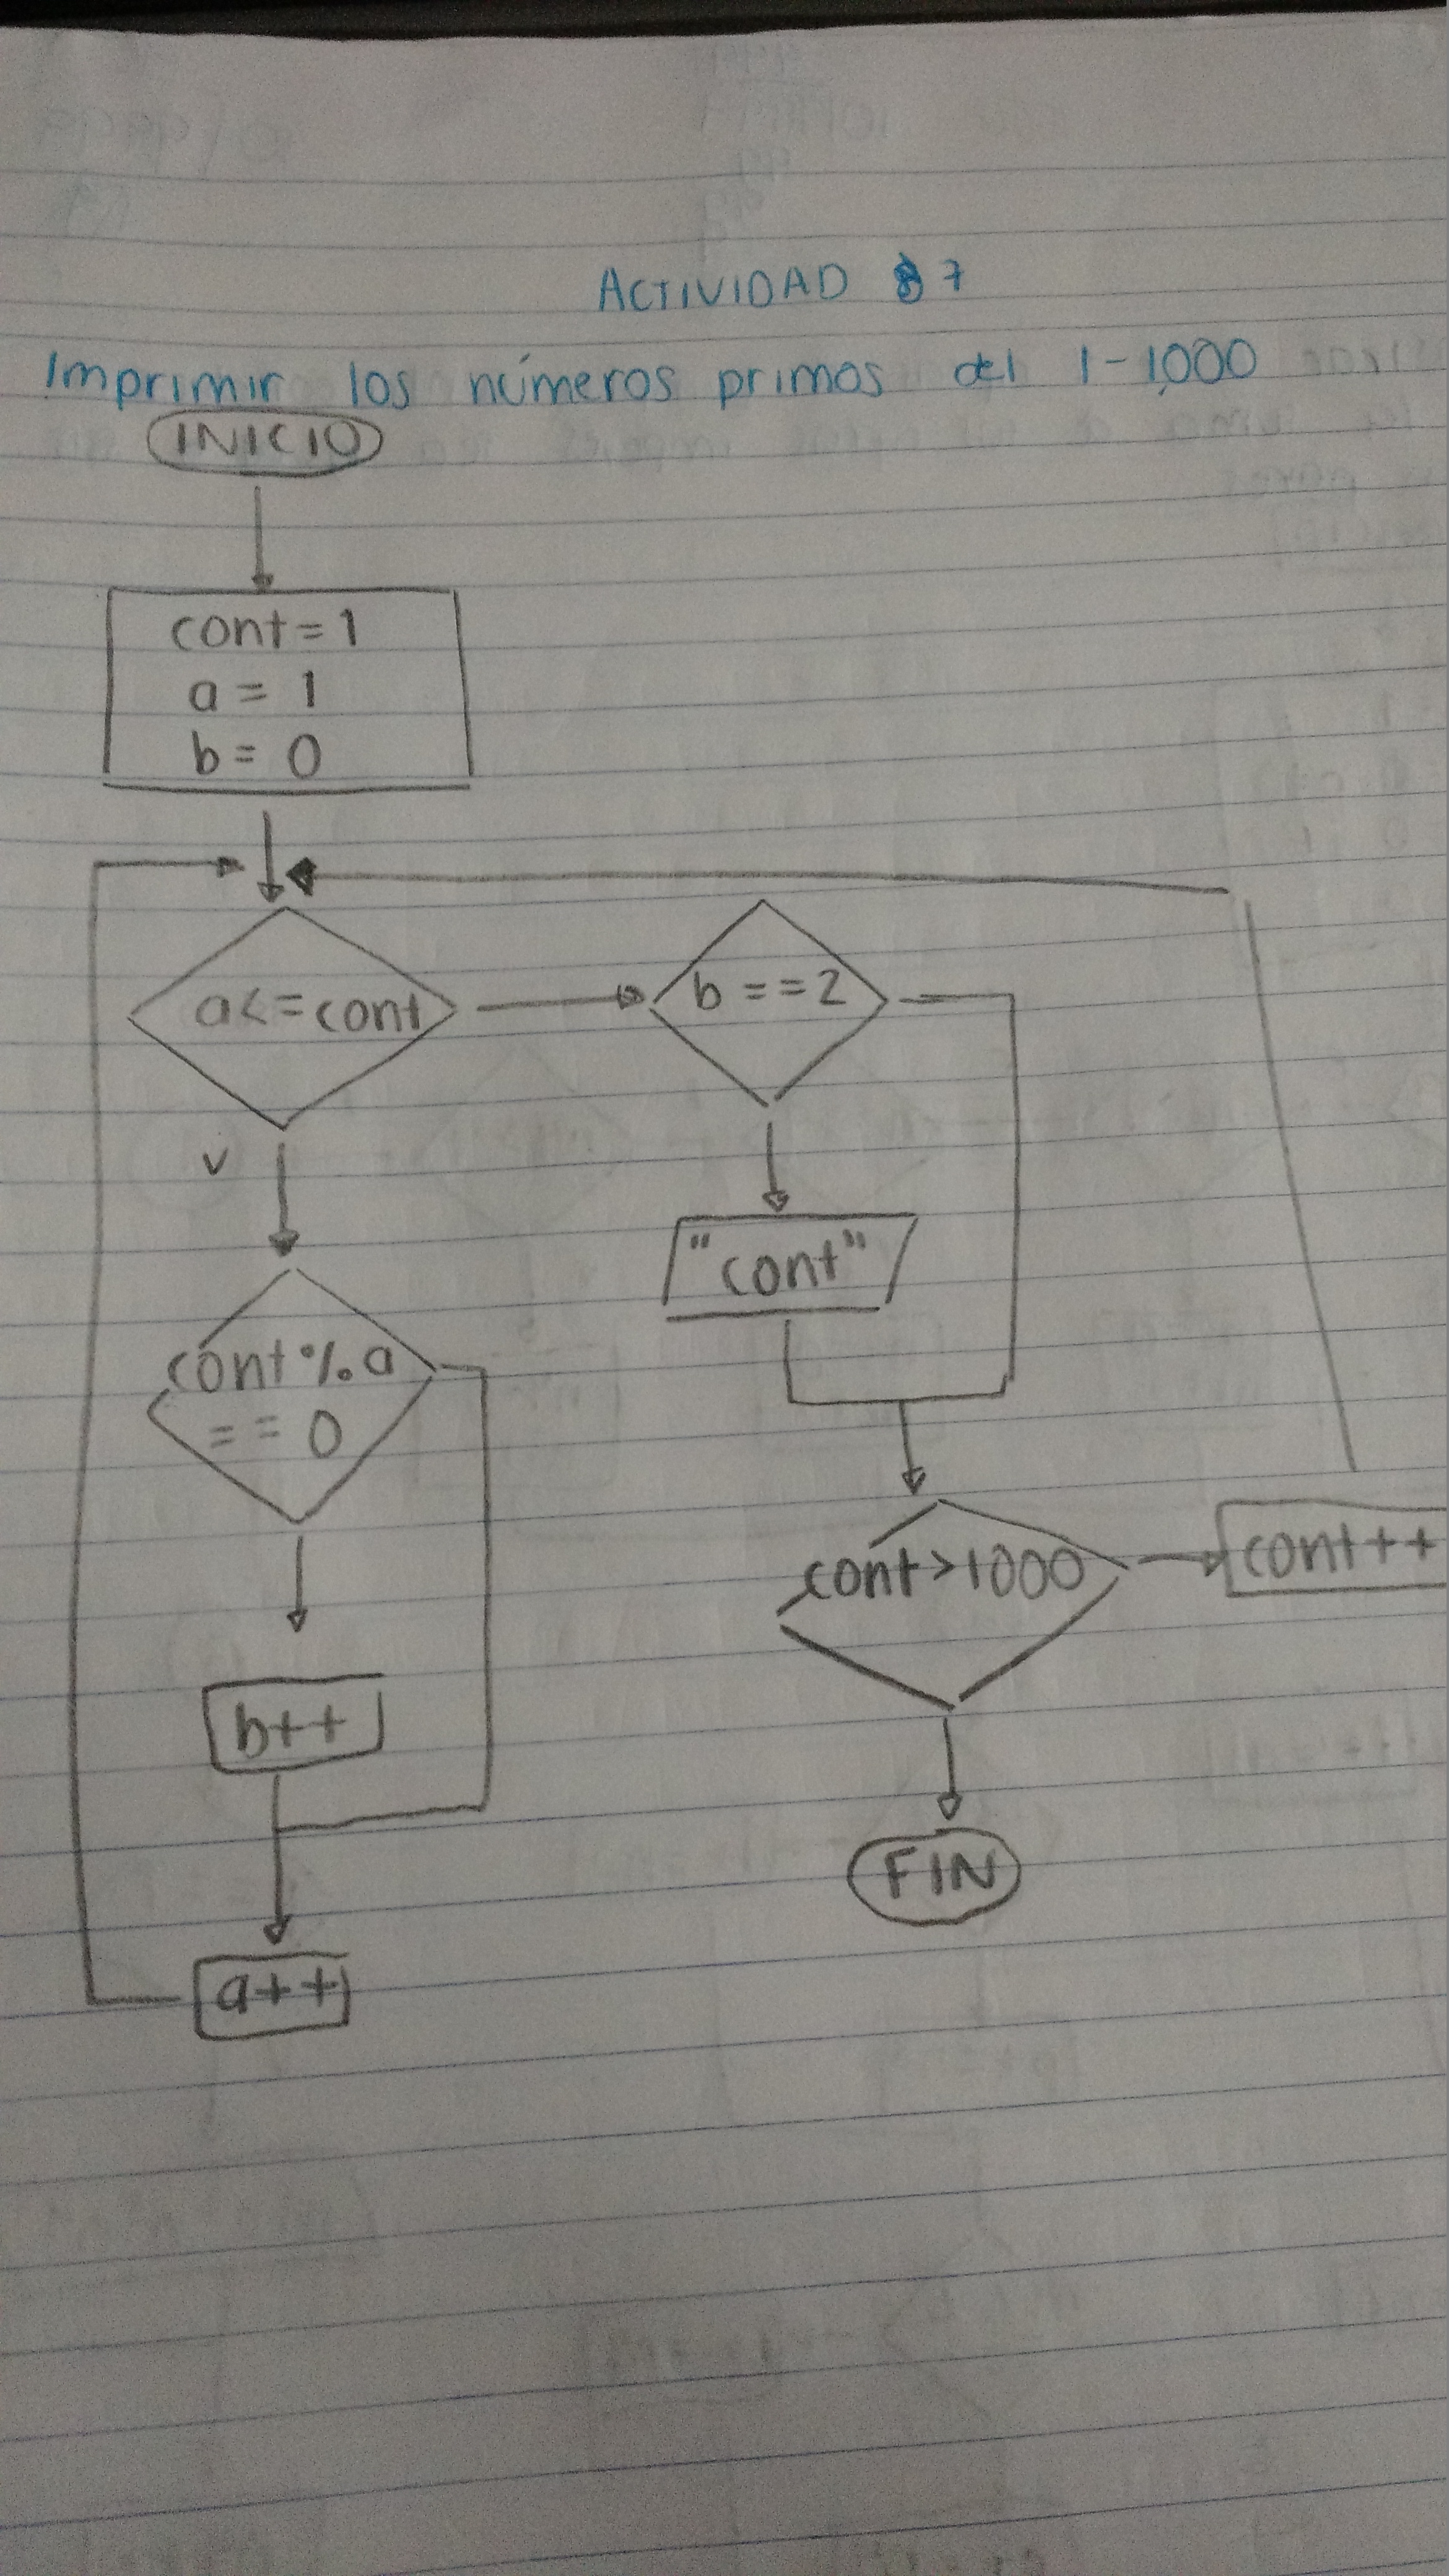 ACTIVIDAD 7
Imprimir los números primos del 1-1,000
INICIO
cont=1
a = 1
b = 0
a<=cont
b==2
V
"cont"
cont%a
== 0
cont>1000
cont++
b++
FIN
a++